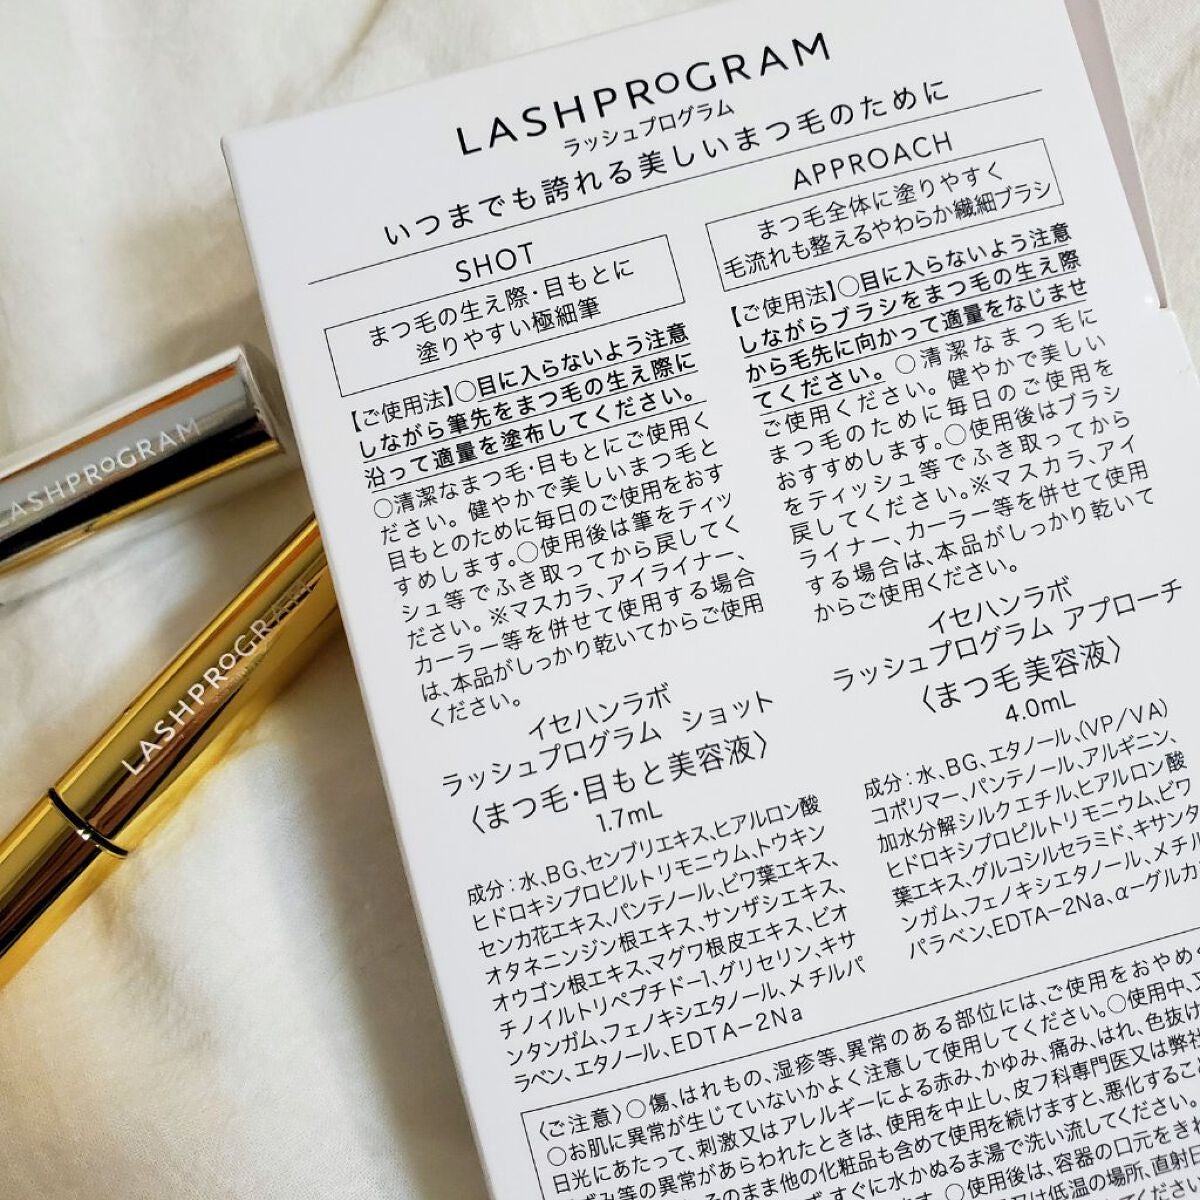 LASHPROGRAM
ラッシュプログラム
いつまでも誇れる美しいまつ毛のために
SHOT
まつ毛の生え際・目もとに
塗りやすい極細筆
【ご使用法】○目に入らないよう注意
しながら筆先をまつ毛の生え際に
沿って適量を塗布してください。
○清潔なまつ毛・目もとにご使用く
ださい。健やかで美しいまつ毛と
目もとのために毎日のご使用をおす
すめします。○使用後は筆をティッ
シュ等でふき取ってから戻してく
ださい。※マスカラ、アイライナー、
カーラー等を併せて使用する場合
は、本品がしっかり乾いてからご使用
ください。
イセハンラボ
ラッシュプログラム ショット
〈まつ毛・目もと美容液〉
1.7mL
成分：水、BG、センブリエキス、ヒアルロン酸
ヒドロキシプロピルトリモニウム、トウキン
センカ花エキス、パンテノール、ビワ葉エキス、
オタネニンジン根エキス、サンザシエキス、
オウゴン根エキス、マグワ根皮エキス、ビオ
チノイルトリペプチド-1、グリセリン、キサ
ンタンガム、フェノキシエタノール、メチルパ
ラベン、エタノール、EDTA-2Na
APPROACH
まつ毛全体に塗りやすく
毛流れも整えるやわらか繊細ブラシ
【ご使用法】○目に入らないよう注意
しながらブラシをまつ毛の生え際
から毛先に向かって適量をなじませ
てください。○清潔なまつ毛に
ご使用ください。健やかで美しい
まつ毛のために毎日のご使用を
おすすめします。○使用後はブラシ
をティッシュ等でふき取ってから
戻してください。※マスカラ、アイ
ライナー、カーラー等を併せて使用
する場合は、本品がしっかり乾いて
からご使用ください。
イセハンラボ
ラッシュプログラム アプローチ
〈まつ毛美容液〉
4.0mL
成分：水、BG、エタノール、(VP/VA)
コポリマー、パンテノール、アルギニン、
加水分解シルクエチル、ヒアルロン酸
ヒドロキシプロピルトリモニウム、ビワ
葉エキス、グルコシルセラミド、キサンタ
ンガム、フェノキシエタノール、メチル
パラベン、EDTA-2Na、α-グルカ
〈ご注意〉○傷、はれもの、湿疹等、異常のある部位には、ご使用をおやめ
○お肌に異常が生じていないかよく注意して使用してください。○使用中、
日光にあたって、刺激又はアレルギーによる赤み、かゆみ、痛み、はれ、色抜け
ずみ等の異常があらわれたときは、使用を中止し、皮フ科専門医又は弊社
そのまま他の化粧品も含めて使用を続けますと、悪化するこ
すぐに水かぬるま湯で洗い流してください。
○使用後は、容器の口元をきれ
低温の場所、直射日
LASHPROGRAM
LASHPROGRAM